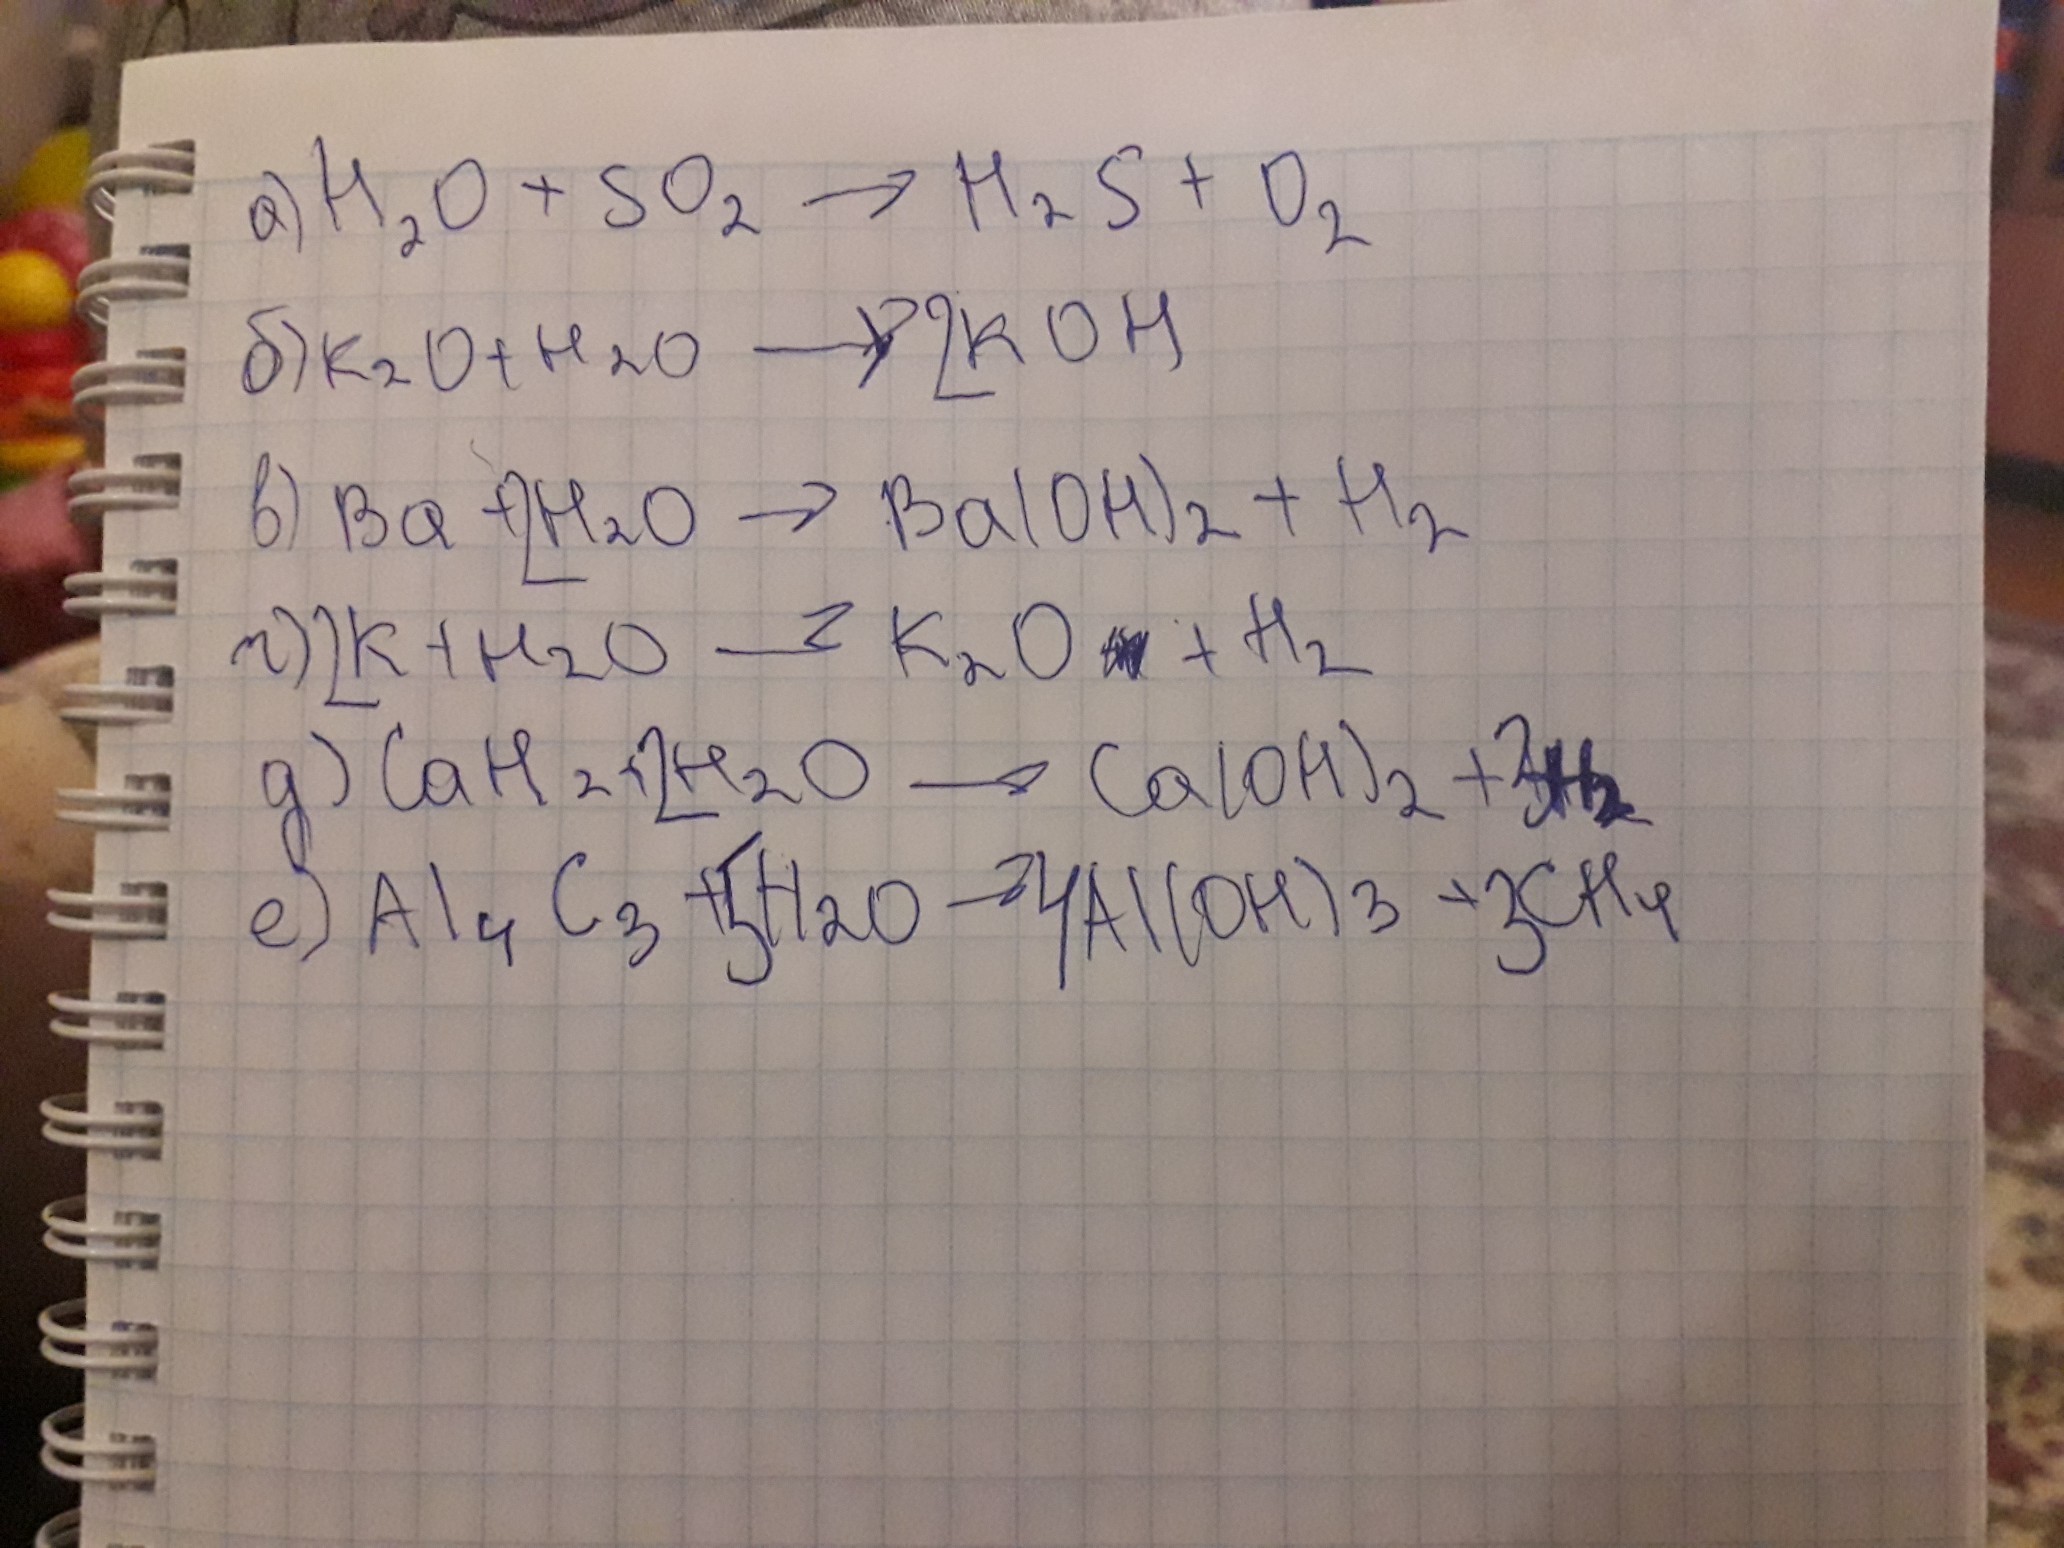 а) H₂O + SO₂ → H₂S + O₂
б) K₂O + H₂O → 2KOH
в) Ba + 2H₂O → Ba(OH)₂ + H₂
г) 2K + H₂O → K₂O + H₂
д) CaH₂ + 2H₂O → Ca(OH)₂ + H₂
е) Al₄C₃ + H₂O → 4Al(OH)₃ + 3CH₄